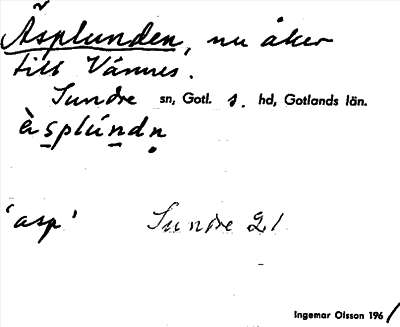 Äsplunden, nu åker
till Vännes.
Sundre sn, Gotl. s. hd, Gotlands län.
ès̲plún̲dṇ
'asp' Sundre 21
Ingemar Olsson 1961